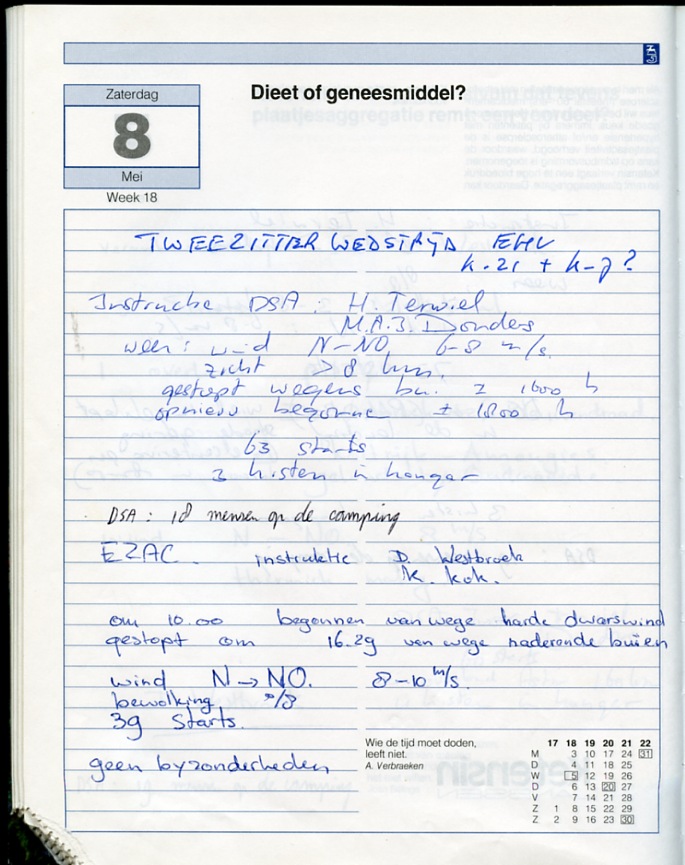 Zaterdag
8
Mei
Week 18
Dieet of geneesmiddel?
TWEEZITTER WEDSTRIJD EHV
K-21 + K-7?
Instructie DSA : H. Terwiel
M.A.J. Donders
weer : wind N-NO 6-8 m/s.
zicht > 8 km.
gestopt wegens bui. ± 1600 h
opnieuw begonnen ± 1800 h
63 starts
3 kisten in hangar
DSA : 18 mensen op de camping
EZAC. instruktie D. Westbroek
K. Kok.
om 10.00 begonnen van wege harde dwarswind
gestopt om 16.29 van wege naderende buien
wind N → NO. 8-10 m/s.
bewolking /8
39 Starts.
geen byzonderheden
Wie de tijd moet doden,
leeft niet.
A. Verbraeken
17 18 19 20 21 22
M 3 10 17 24 31
D 4 11 18 25
W 5 12 19 26
D 6 13 20 27
V 7 14 21 28
Z 1 8 15 22 29
Z 2 9 16 23 30